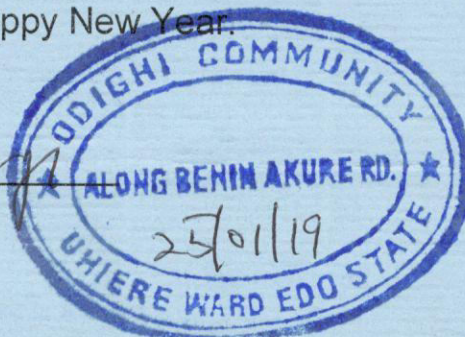 appy New Year.
ODIGHI COMMUNITY
★ ALONG BENIN AKURE RD. ★
25/01/19
UHIERE WARD EDO STATE